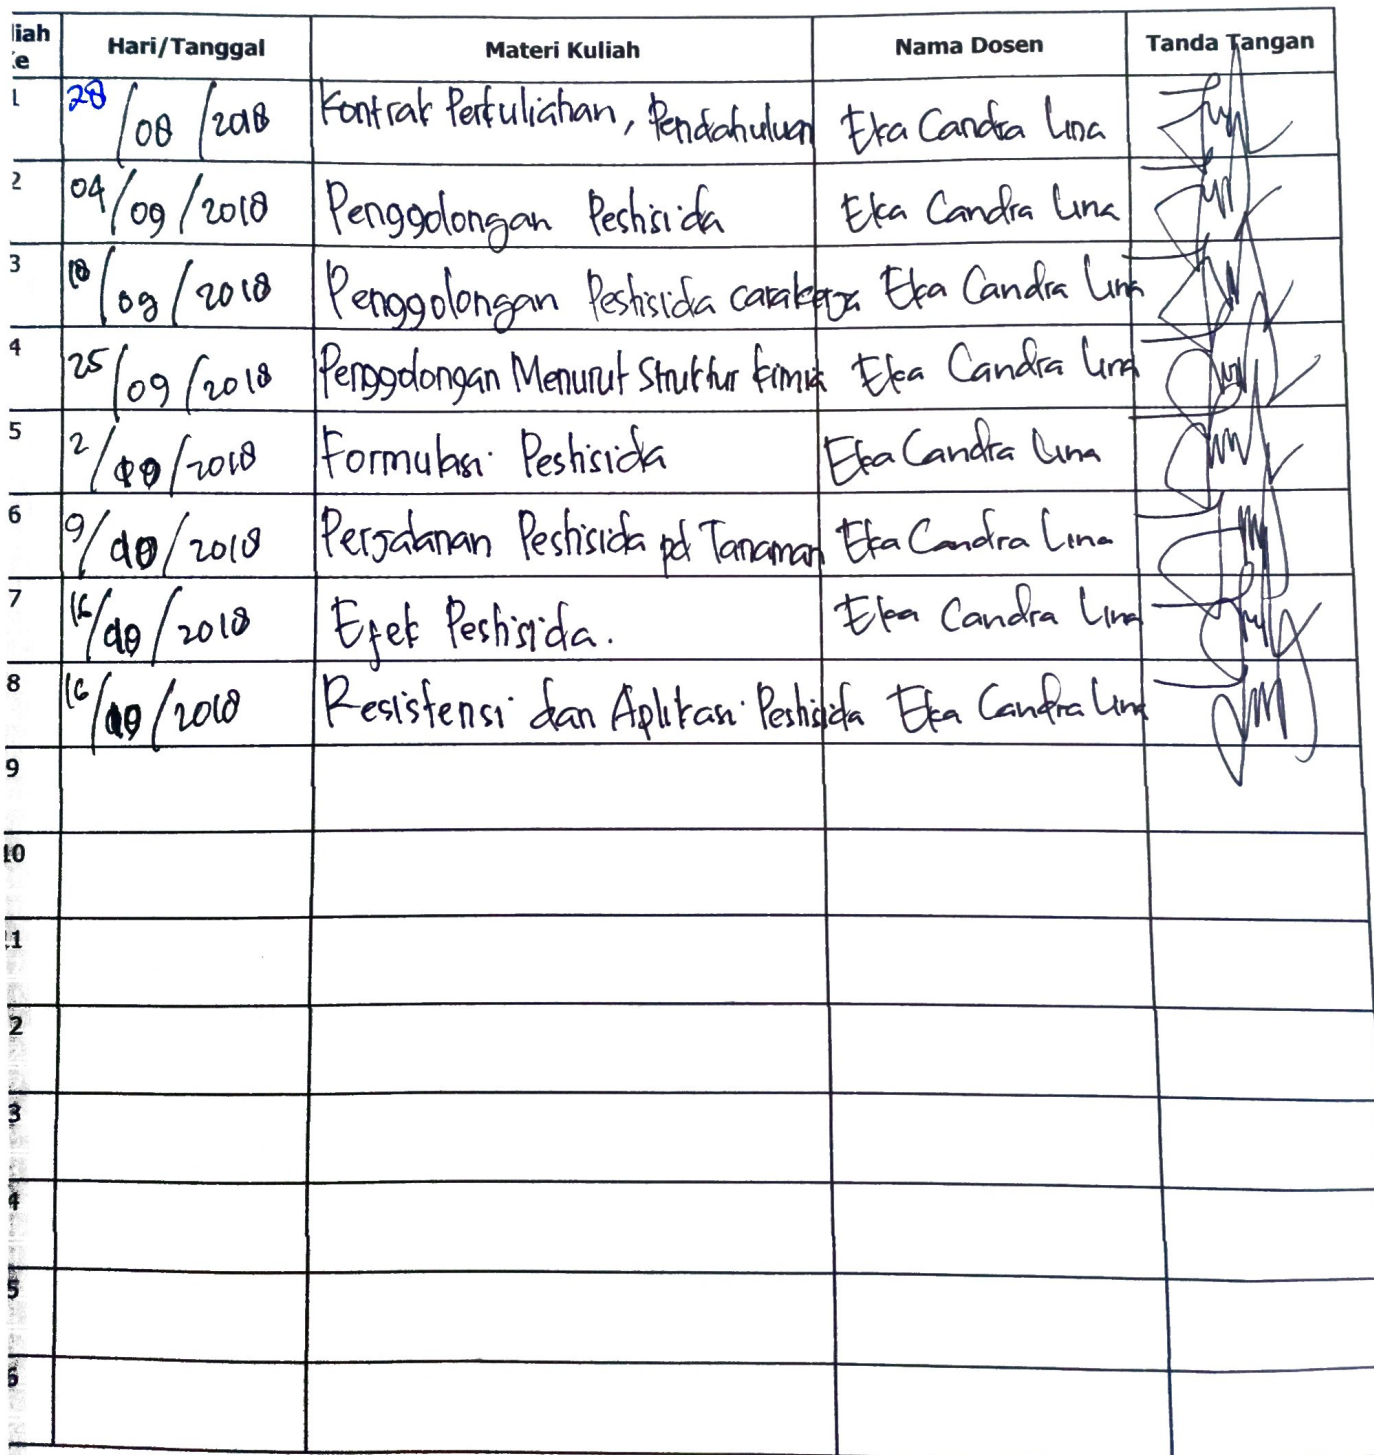 liah
ke Hari/Tanggal Materi Kuliah Nama Dosen Tanda Tangan
1 28/08/2018 Kontrak Perkuliahan, Pendahuluan Eka Candra Lina
2 04/09/2018 Penggolongan Pestisida Eka Candra Lina
3 18/09/2018 Penggolongan Pestisida cara kerja Eka Candra Lina
4 25/09/2018 Penggolongan Menurut Struktur kimia Eka Candra Lina
5 2/10/2018 Formulasi Pestisida Eka Candra Lina
6 9/10/2018 Perjalanan Pestisida pd Tanaman Eka Candra Lina
7 16/10/2018 Efek Pestisida. Eka Candra Lina
8 16/10/2018 Resistensi dan Aplikasi Pestisida Eka Candra Lina
9
10
11
2
3
4
5
6